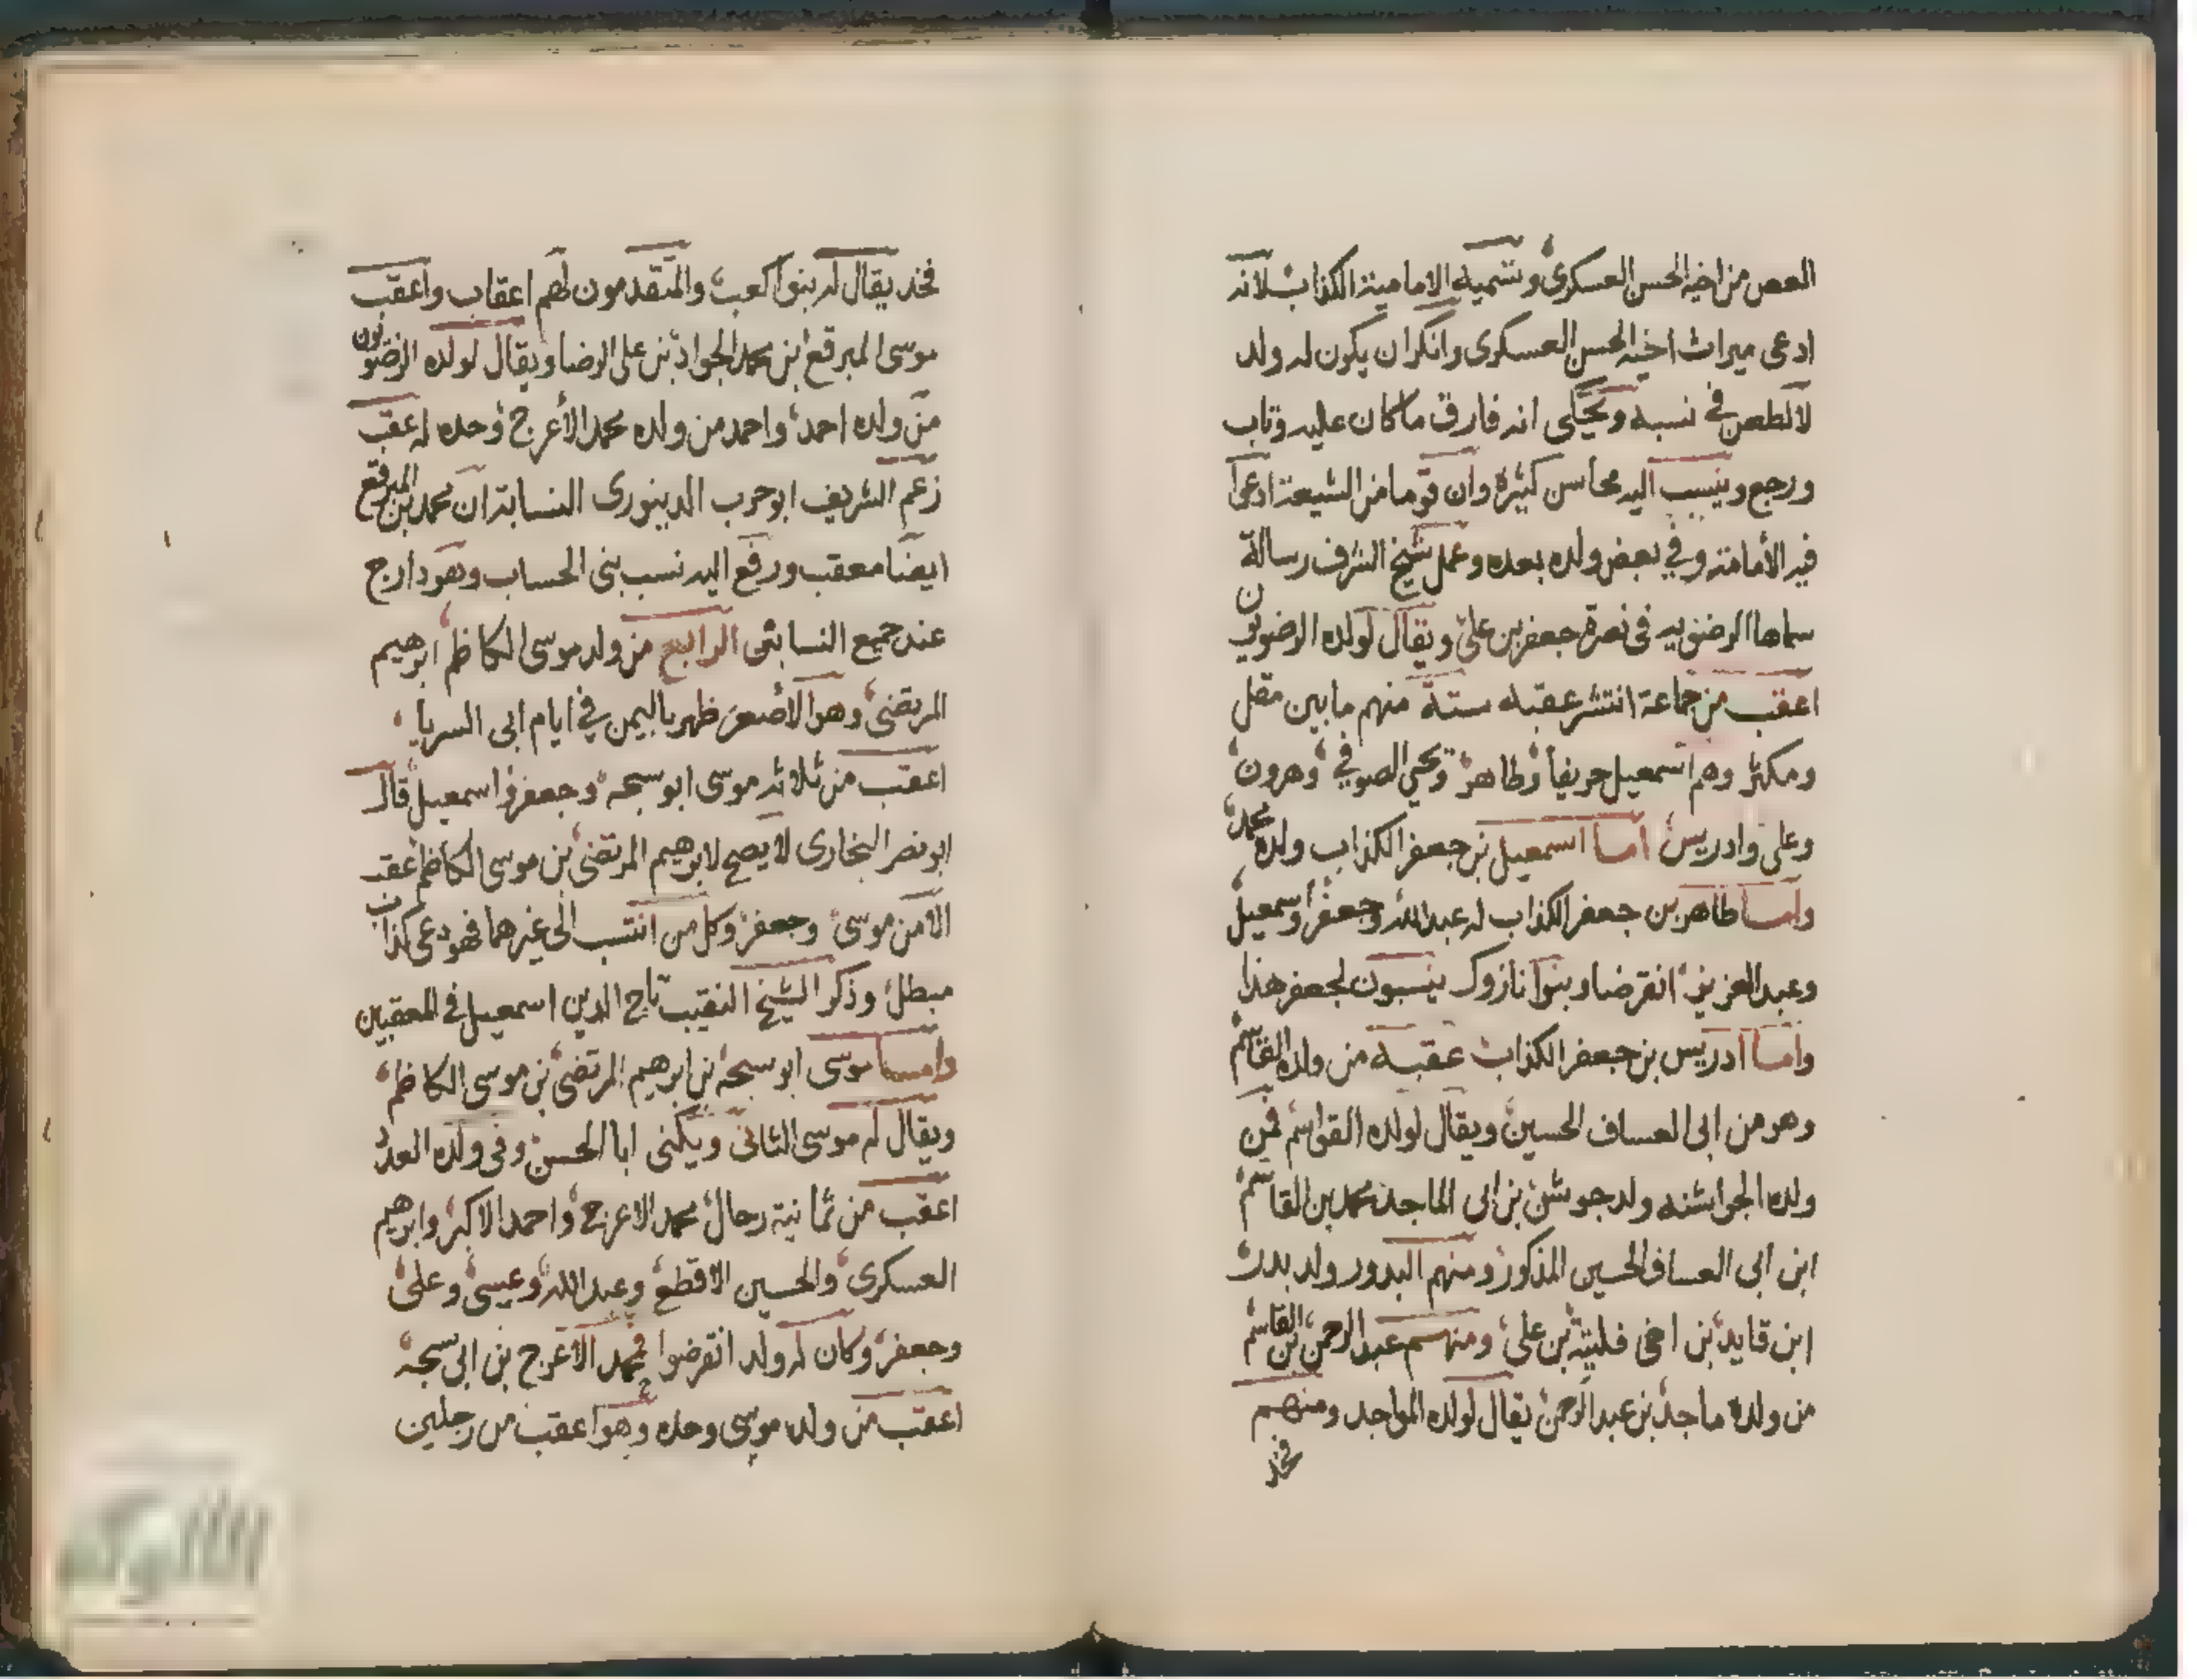 العص من اخيه الحسن العسكرى وتسميه الامامية الكذاب لانه
ادعى ميراث اخيه الحسن العسكرى وانكر ان يكون له ولد
لا لطعن في نسبه ويحكى انه فارق ما كان عليه وتاب
ورجع وينسب اليه محاسن كثيرة وان قوما من الشيعة ادعوا
فيه الأمامة وفي بعض ولده بعده وعمل شيخ الشرف رسالة
سماها الرضويه في نصرة جعفر بن على ويقال لولده الرضويون
اعقب من جماعة انتشر عقبه ستة منهم ما بين مقل
ومكثر وهم اسمعيل حريفا وطاهر ويحيى الصوفي وهرون
وعلى وادريس أما اسمعيل بن جعفر الكذاب ولده محمد
وأما طاهر بن جعفر الكذاب له عبدالله وجعفر واسمعيل
وعبد العزيز انقرضا وبنوا نازوك ينسبون لجعفر هذا
وأما ادريس بن جعفر الكذاب عقبه من ولده القاسم
وهو من ابى العساف الحسين ويقال لولده القواسم فمن
ولده الجواشنه ولد جوشن بن ابى الماجد محمد بن القاسم
ابن ابى العساف الحسين المذكور ومنهم البدور ولد بدر
ابن قايد بن اخى فليتة بن على ومنهم عبد الرحمن بن القاسم
من ولده ماجد بن عبد الرحمن يقال لولده المواجد ومنهم
فخذ
فخذ يقال له بنوا كعب والمتقدمون لهم اعقاب واعقب
موسى المبرقع ابن محمد الجواد بن على الرضا ويقال لولده الرضويون
من ولده احمد واحمد من ولده محمد الأعرج وحده له عقب
زعم الشريف ابو حرب الدينورى النسابة ان محمد بن المبرقع
ايضا معقب ورفع اليه نسب بنى الحساب وهو دارج
عند جميع النسابى الرابع من ولد موسى الكاظم ابرهيم
المرتضى وهو الأصغر ظهر باليمن في ايام ابى السريا
اعقب من ثلاثه موسى ابو سبحه وجعفر واسمعيل قال
ابو نصر البخارى لا يصح لابرهيم المرتضى بن موسى الكاظم عقب
الا من موسى وجعفر وكل من انتسب الى غيرهما فهو دعى كذاب
مبطل وذكر الشيخ النقيب تاج الدين اسمعيل في المعقبين
وأما موسى ابو سبحه بن ابرهيم المرتضى بن موسى الكاظم
ويقال له موسى الثانى ويكنى ابا الحسن وفي ولده العدد
اعقب من ثمانية رجال محمد الاعرج واحمد الاكبر وابرهيم
العسكرى والحسين الاقطع وعبدالله وعيسى وعلى
وجعفر وكان له ولد انقرضوا فمحمد الأعرج بن ابى سبحه
اعقب من ولده موسى وحده وهو اعقب من رجلين